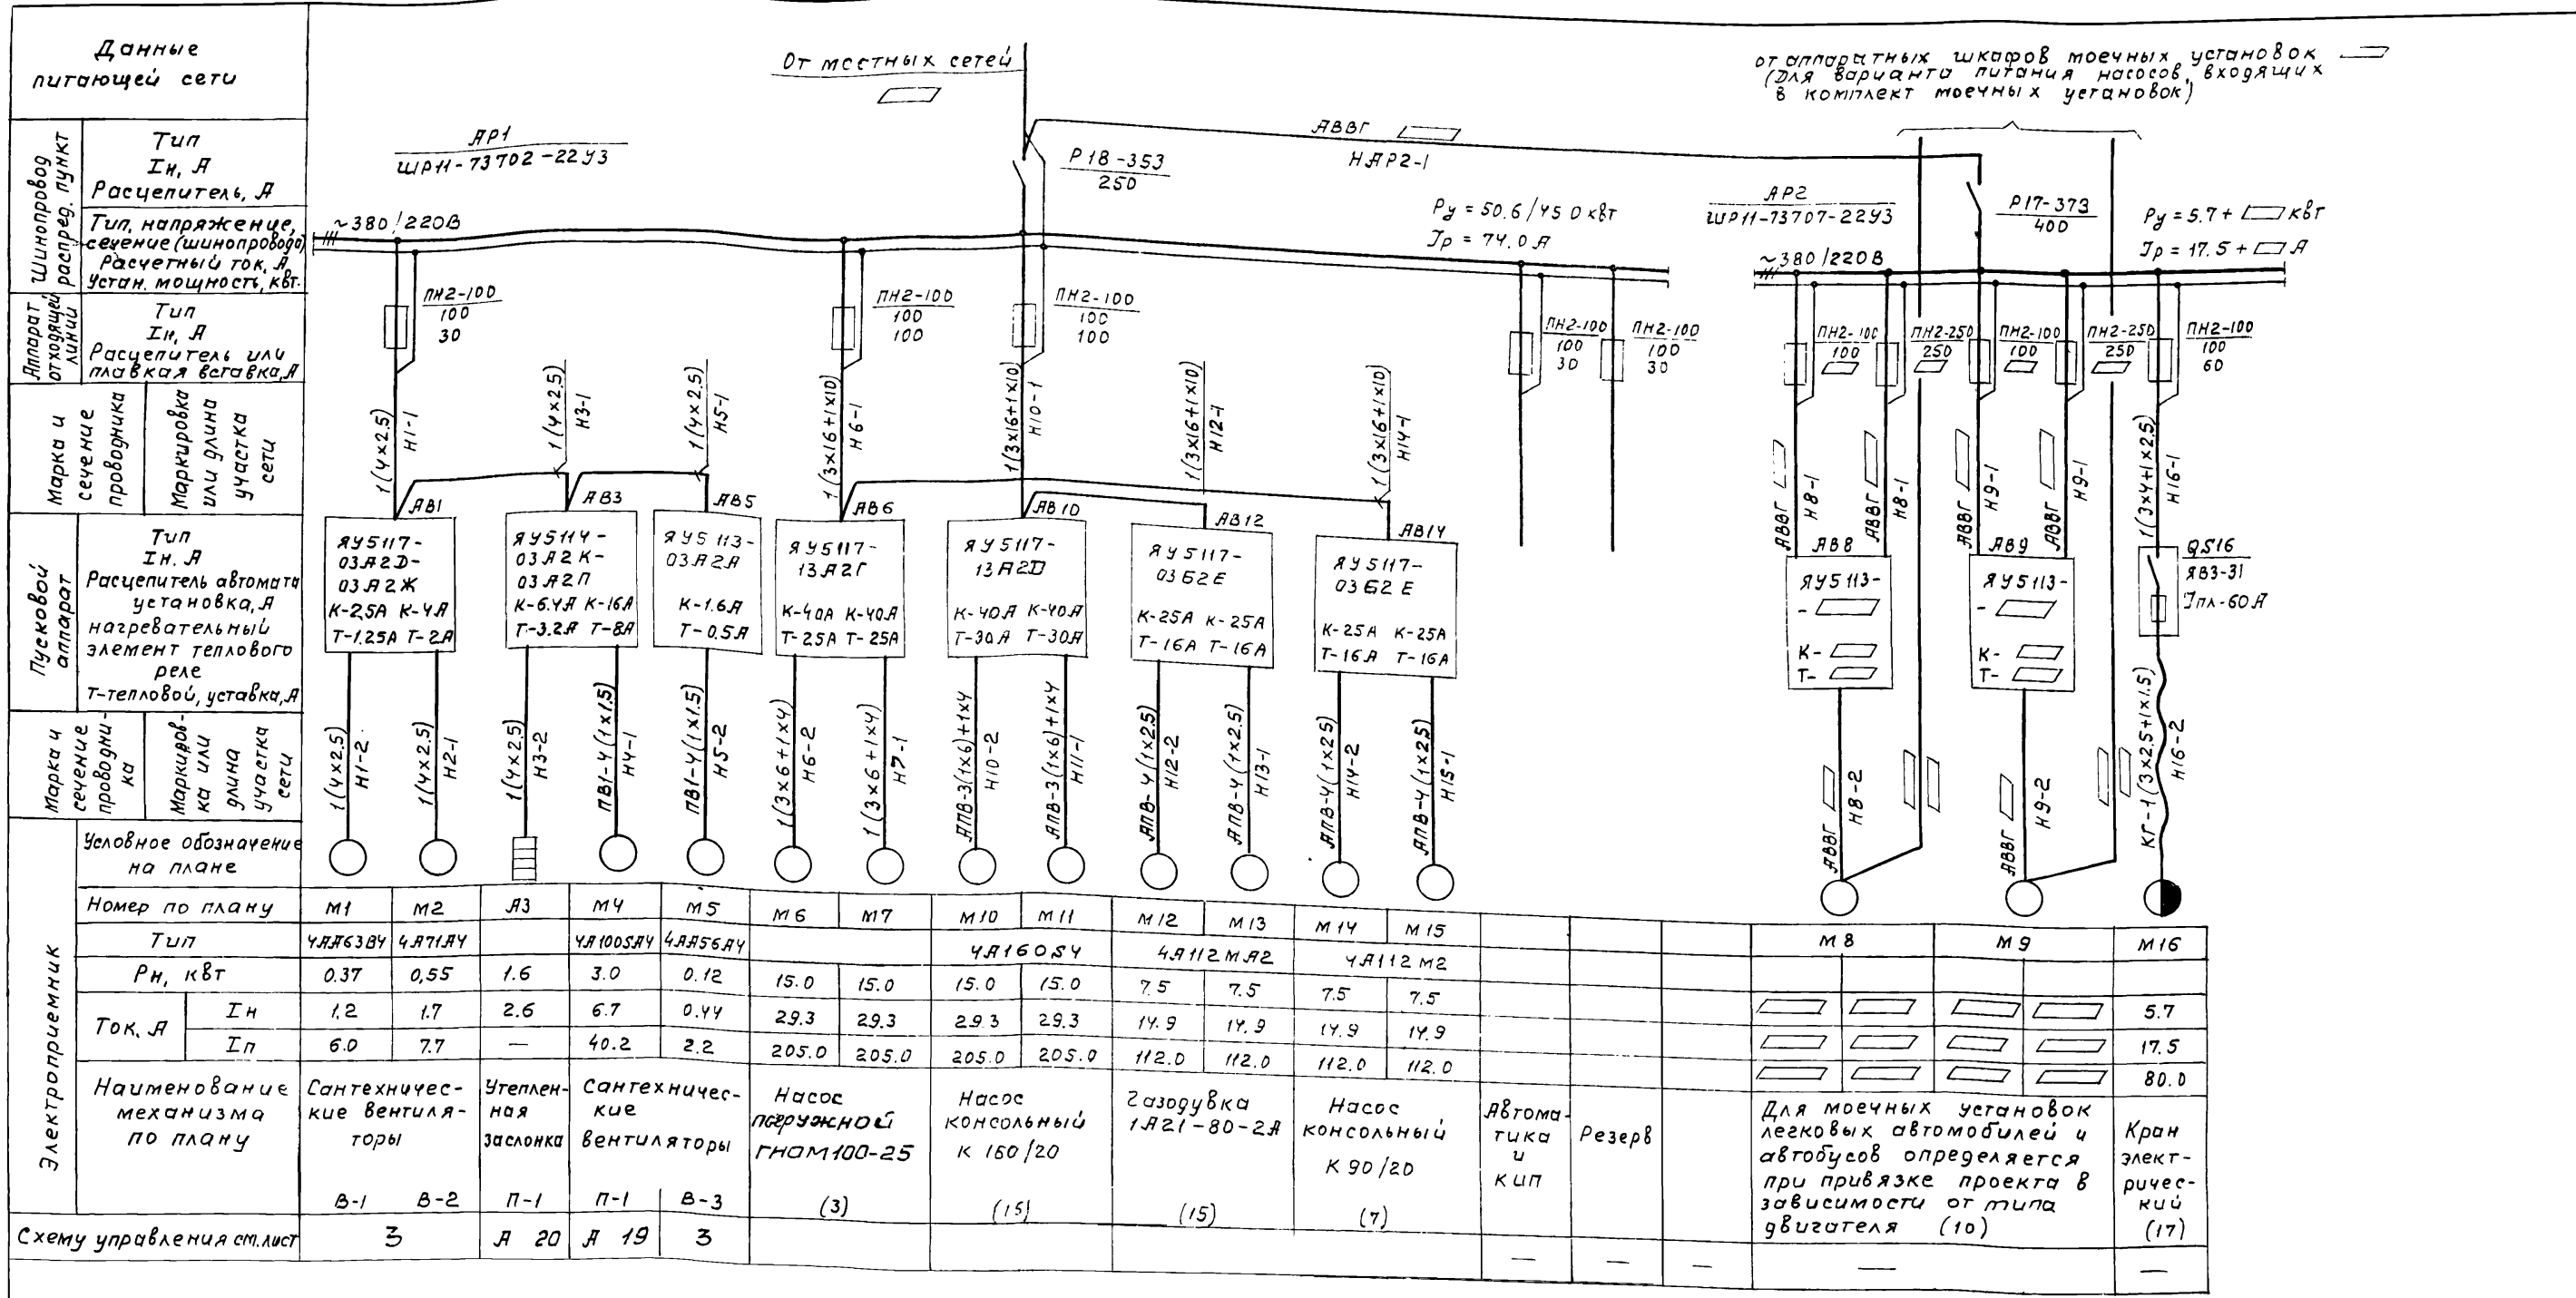 Данные
питающей сети
Шинопровод
распред. пункт
Тип
Iн, А
Расцепитель, А
Тип, напряжение,
сечение (шинопровода)
Расчетный ток, А
Устан. мощность, квт.
Аппарат
отходящей
линии
Тип
Iн, А
Расцепитель или
плавкая вставка, А
Марка и
сечение
проводника
Маркировка
или длина
участка
сети
Пусковой
аппарат
Тип
Iн. А
Расцепитель автомата
установка, А
нагревательный
элемент теплового
реле
Т-тепловой, уставка, А
Марка и
сечение
проводни-
ка
Маркиров-
ка или
длина
участка
сети
От местных сетей
от аппаратных шкафов моечных установок
(Для варианта питания насосов, входящих
в комплект моечных установок)
АР1
ШР11-73702-22У3
Р18-353
250
АВВГ
НАР2-1
Ру = 50.6/45 0 квт
Iр = 74.0 А
АР2
ШР11-73707-22У3
Р17-373
400
Ру = 5.7 + квт
Iр = 17.5 + А
~380/220В
~380/220В
ПН2-100
100
30
ПН2-100
100
100
ПН2-100
100
100
ПН2-100
100
30
ПН2-100
100
30
ПН2-100
100
ПН2-250
250
ПН2-100
100
ПН2-250
250
ПН2-100
100
60
1(4×2.5)
Н1-1
1(4×2.5)
Н3-1
1(4×2.5)
Н5-1
1(3×16+1×10)
Н6-1
1(3×16+1×10)
Н10-1
1(3×16+1×10)
Н12-1
1(3×16+1×10)
Н14-1
АВВГ
Н8-1
АВВГ
Н8-1
АВВГ
Н9-1
АВВГ
Н9-1
1(3×4+1×2.5)
Н16-1
АВ1
ЯУ5117-
03А2D-
03А2Ж
К-2,5А К-4А
Т-1.25А Т-2А
АВ3
ЯУ5114-
03А2К-
03А2П
К-6.4А К-16А
Т-3.2А Т-8А
АВ5
ЯУ5113-
03А2А
К-1.6А
Т-0.5А
АВ6
ЯУ5117-
13А2Г
К-40А К-40А
Т-25А Т-25А
АВ10
ЯУ5117-
13А2D
К-40А К-40А
Т-30А Т-30А
АВ12
ЯУ5117-
03Б2Е
К-25А К-25А
Т-16А Т-16А
АВ14
ЯУ5117-
03Б2Е
К-25А К-25А
Т-16А Т-16А
АВ8
ЯУ5113-
-
К-
Т-
АВ9
ЯУ5113-
-
К-
Т-
QS16
ЯВ3-31
Iпл-60А
1(4×2.5)
Н1-2
1(4×2.5)
Н2-1
1(4×2.5)
Н3-2
ПВ1-4(1×1.5)
Н4-1
ПВ1-4(1×1.5)
Н5-2
1(3×6+1×4)
Н6-2
1(3×6+1×4)
Н7-1
АПВ-3(1×6)+1×4
Н10-2
АПВ-3(1×6)+1×4
Н11-1
АПВ-4(1×2.5)
Н12-2
АПВ-4(1×2.5)
Н13-1
АПВ-4(1×25)
Н14-2
АПВ-4(1×25)
Н15-1
АВВГ
Н8-2
АВВГ
Н9-2
КГ-1(3×2.5+1×1.5)
Н16-2
Электроприемник
Условное обозначение
на плане
Номер по плану М1 М2 А3 М4 М5 М6 М7 М10 М11 М12 М13 М14 М15 М8 М9 М16
Тип 4АА63В4 4А71А4 4А100SА4 4АА56А4 4А160S4 4А112МА2 4А112М2
Рн, квт 0.37 0,55 1.6 3.0 0.12 15.0 15.0 15.0 15.0 7.5 7.5 7.5 7.5 5.7
Ток. А
Iн 1.2 1.7 2.6 6.7 0.44 29.3 29.3 29.3 29.3 14.9 14.9 14.9 14.9 17.5
Iп 6.0 7.7 — 40.2 2.2 205.0 205.0 205.0 205.0 112.0 112.0 112.0 112.0 80.0
Наименование
механизма
по плану
Сантехничес-
кие вентиля-
торы
В-1 В-2
Утеплен-
ная
заслонка
П-1
Сантехничес-
кие
вентиляторы
П-1 В-3
Насос
погружной
ГНОМ100-25
(3)
Насос
консольный
К 160/20
(15)
Газодувка
1А21-80-2А
(15)
Насос
консольный
К 90/20
(7)
Автома-
тика
и
КИП
Резерв
Для моечных установок
легковых автомобилей и
автобусов определяется
при привязке проекта в
зависимости от типа
двигателя (10)
Кран
элект-
ричес-
кий
(17)
Схему управления см. лист 3 А 20 А 19 3 — — — — —